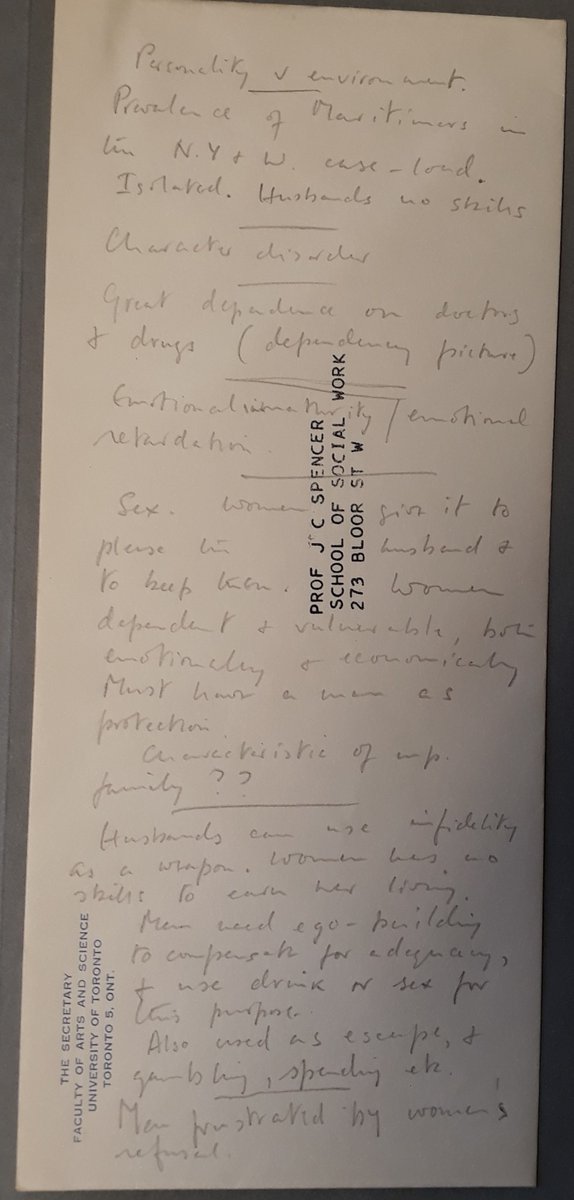 Personality v environment.
Prevalence of Maritimers in
the N.Y & W. case-load.
Isolated. Husbands no skills
Character disorder
Great dependence on doctors
& drugs (dependency picture)
Emotional immaturity / emotional
retardation.
Sex. Women give it to
please the husband &
to keep him. Women
dependent & vulnerable, both
emotionally & economically
Must have a man as
protection
Characteristic of m.p.
family ??
Husbands can use infidelity
as a weapon. Women has no
skills to earn her living.
Men need ego-building
to compensate for adequacy,
& use drink or sex for
this purpose.
Also used as escape, &
gambling, spending etc.
Men frustrated by women's
refusal.
PROF J C SPENCER
SCHOOL OF SOCIAL WORK
273 BLOOR ST W
THE SECRETARY
FACULTY OF ARTS AND SCIENCE
UNIVERSITY OF TORONTO
TORONTO 5, ONT.